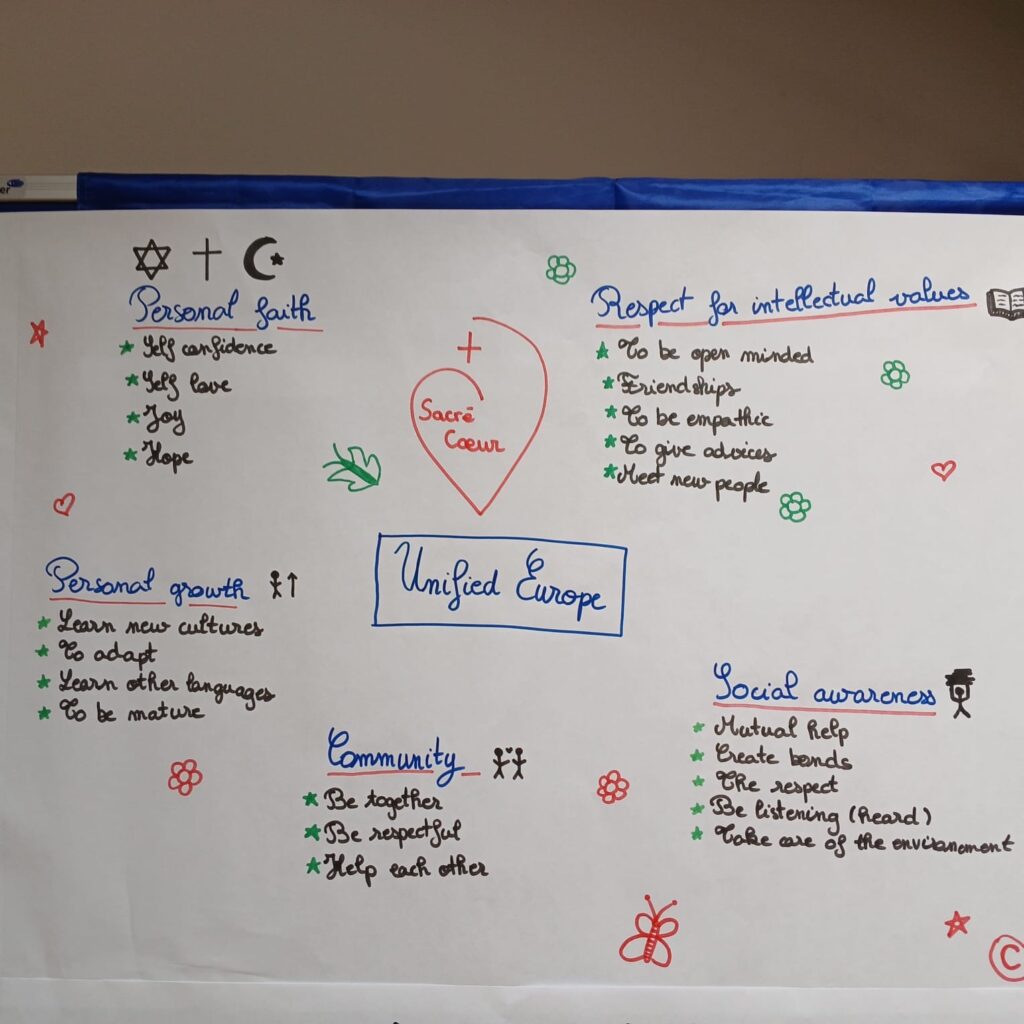 er
Personal faith
Self confidence
Self love
Joy
Hope
Respect for intellectual values
To be open minded
Friendships
To be empathic
To give advices
Meet new people
Sacré
Cœur
Unified Europe
Personal growth
Learn new cultures
To adapt
Learn other languages
To be mature
Community
Be together
Be respectful
Help each other
Social awareness
Mutual help
Create bonds
The respect
Be listening (heard)
Take care of the environment
C